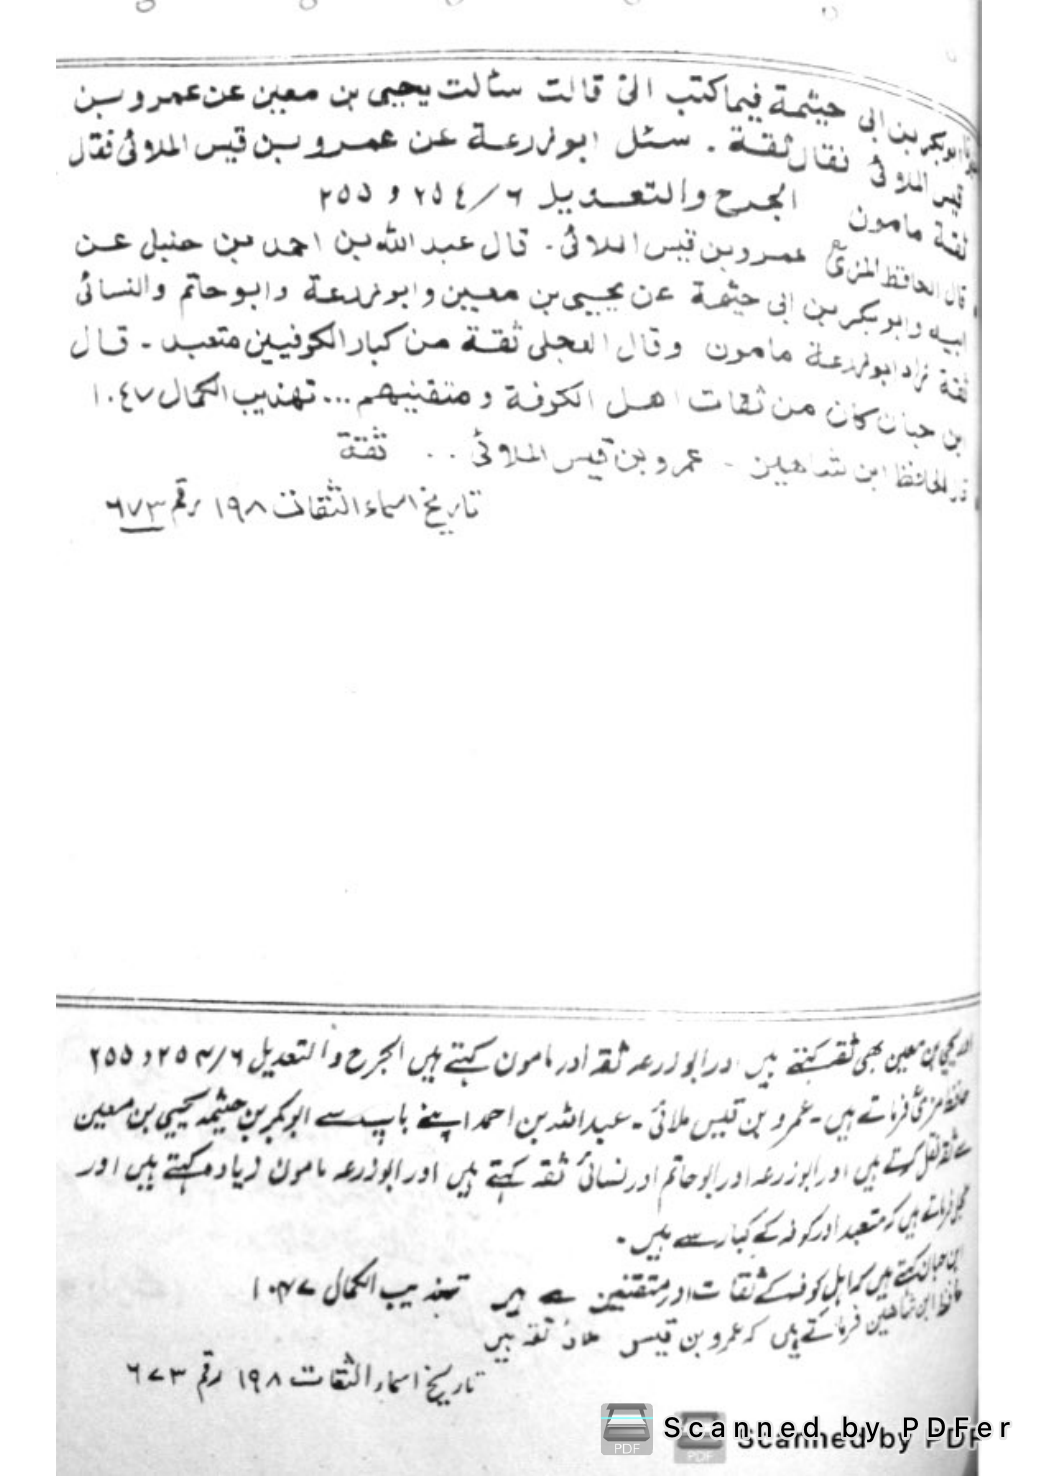 ابوبکر بن ابی حیثمة فیما کتب الیّ قالت سئالت یحیی بن معین عن عمرو بن
قیس الملائی نقال ثقة . سئل ابو زرعة عن عمرو بن قیس الملائی فقال
ثقة مامون الجرح والتعدیل ٦/٢٥٤ و ٢٥٥
قال الحافظ المزیؒ عمرو بن قیس الملائی۔ قال عبد اللہ بن احمد بن حنبل عن
ابیه وابو بکر بن ابی حثیمة عن یحیی بن معین وابو زرعة وابو حاتم والنسائی
ثقة زاد ابو زرعة مامون وقال العجلی ثقة من کبار الکوفیین متعبد ۔ قال
بن حبان کان من ثقات اهل الکوفة و متقنیهم ... تهذیب الکمال ١٠٤٧
الحافظ ابن شاهین ۔ عمرو بن قیس الملائی . . ثقة
تاریخ اسماء الثقات ١٩٨ رقم ٦٧٣
یحیی بن معین بھی ثقہ کہتے ہیں اور ابو زرعہ ثقہ اور مامون کہتے ہیں الجرح والتعدیل ٦/٢٥٤ و ٢٥٥
حافظ مزیؒ فرماتے ہیں ۔ عمرو بن قیس ملائی ۔ عبداللہ بن احمد اپنے باپ سے ابوبکر بن حیثمہ یحیی بن معین
سے ثقہ نقل کرتے ہیں اور ابو زرعہ اور ابو حاتم اور نسائی ثقہ کہتے ہیں اور ابو زرعہ مامون زیادہ کہتے ہیں اور
عجلی فرماتے ہیں کہ متعبد اور کوفہ کے کبار سے ہیں ۔
ابن حبان کہتے ہیں کہ اہل کوفہ کے ثقات اور متقنین سے ہیں تہذیب الکمال ١٠٤٧
حافظ ابن شاھین فرماتے ہیں کہ عمرو بن قیس ثقہ ہیں
تاریخ اسماء الثقات ١٩٨ رقم ٦٧٣
Scanned by PDFer
Scanned by PDF